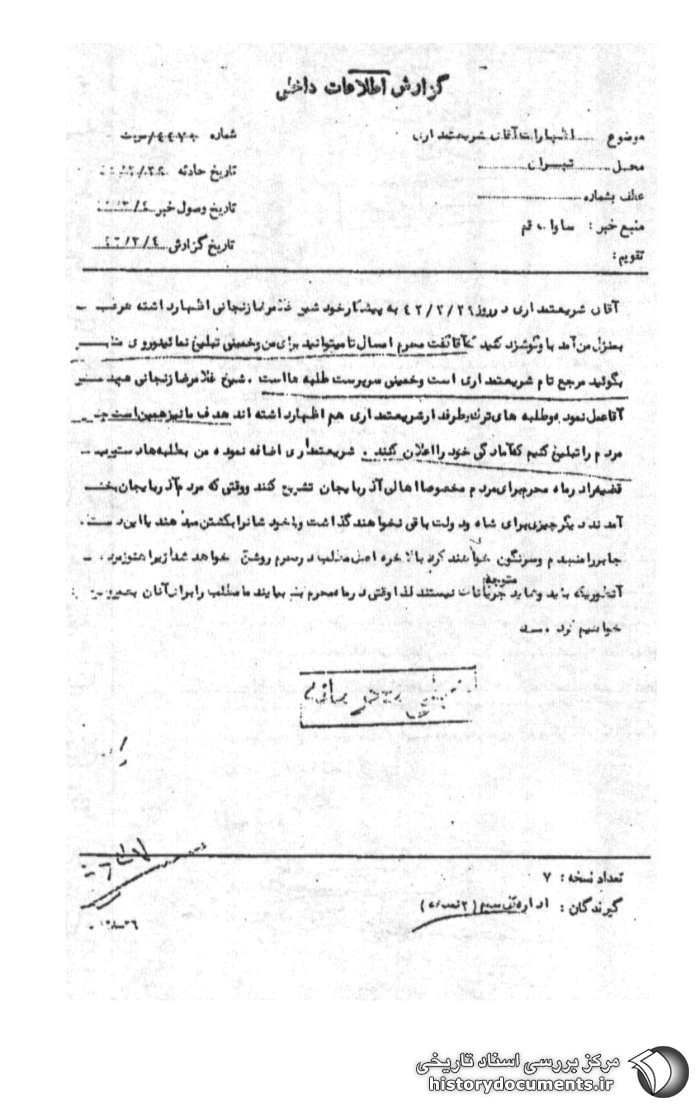 گزارش اطلاعات داخلی
موضوع اظهارات آقای شریعتمداری
شماره
محل تهران
تاریخ حادثه
عطف بشماره
تاریخ وصول خبر
منبع خبر : ساواک قم
تاریخ گزارش
تقویم :
آقای شریعتمداری در روز به پیشکار خود شیخ غلامرضا زنجانی اظهار داشته هر کس
بمنزل من آمد باو گوشزد کنید که آقا گفت محرم امسال تا میتوانید برای من و خمینی تبلیغ نمائید و روی منابر
بگوئید مرجع تام شریعتمداری است و خمینی سرپرست طلبه ها است . شیخ غلامرضا زنجانی
آقا عمل نموده و طلبه های ترک و طرفدار شریعتمداری هم اظهار داشته اند هدف ما نیز همین است
مردم را تبلیغ کنیم که آمادگی خود را اعلان کنند . شریعتمداری اضافه نموده من بطلبه ها دستور
قضیه را در ماه محرم برای مردم مخصوصا اهالی آذربایجان تشریح کنند و وقتی که مردم آذربایجان
آمدند دیگر چیزی برای شاه و دولت باقی نخواهند گذاشت و یا خودشان را بکشتن میدهند یا این دستگاه
جابر را منهدم و سرنگون خواهند کرد بالاخره اصل مطلب در محرم روشن خواهد شد زیرا هنوز مردم
آنطوریکه باید و شاید متوجه جریانات نیستند لذا وقتی در ماه محرم بقم بیایند ما مطلب را برای آنان
خواهیم کرد
تعداد نسخه : ۷
گیرندگان : اداره کل سوم
مرکز بررسی اسناد تاریخی
historydocuments.ir